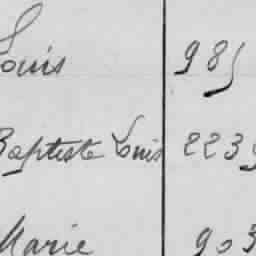 Louis 985
Baptiste Louis 2239
Marie 903